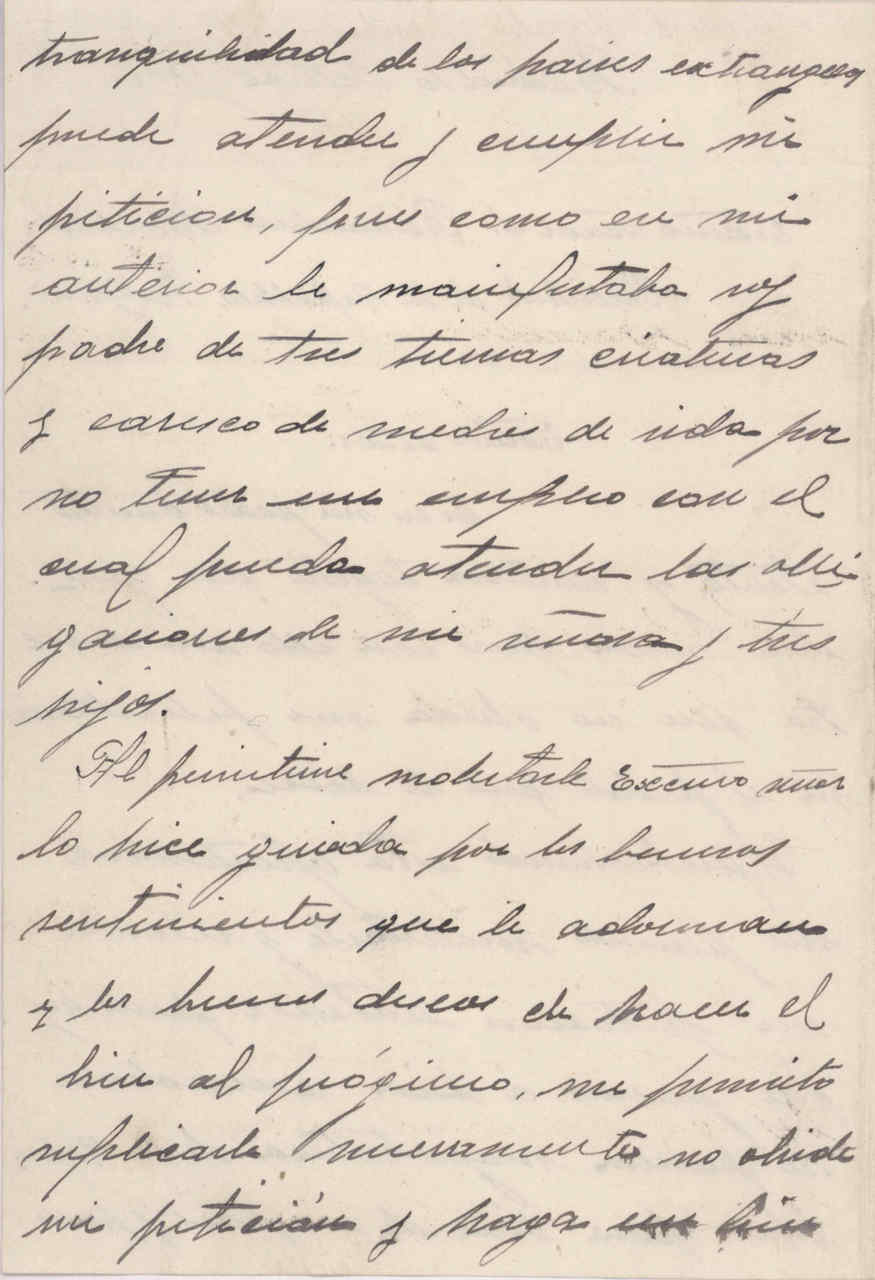 tranquilidad de los paises extrangeros
puede atender y cumplir mi
petición, pues como en mi
anterior le manifestaba soy
padre de tres tiernas criaturas
y caresco de medios de vida por
no tener un empleo con el
cual pueda atender las obli-
gaciones de mi señora y tres
hijos.
Al permitirme molestarle Excmo señor
lo hice guiado por los buenos
sentimientos que le adornan
y los buenos deseos de hacer el
bien al prógimo, me permito
suplicarle nuevamente no olvide
mi petición y haga un bien